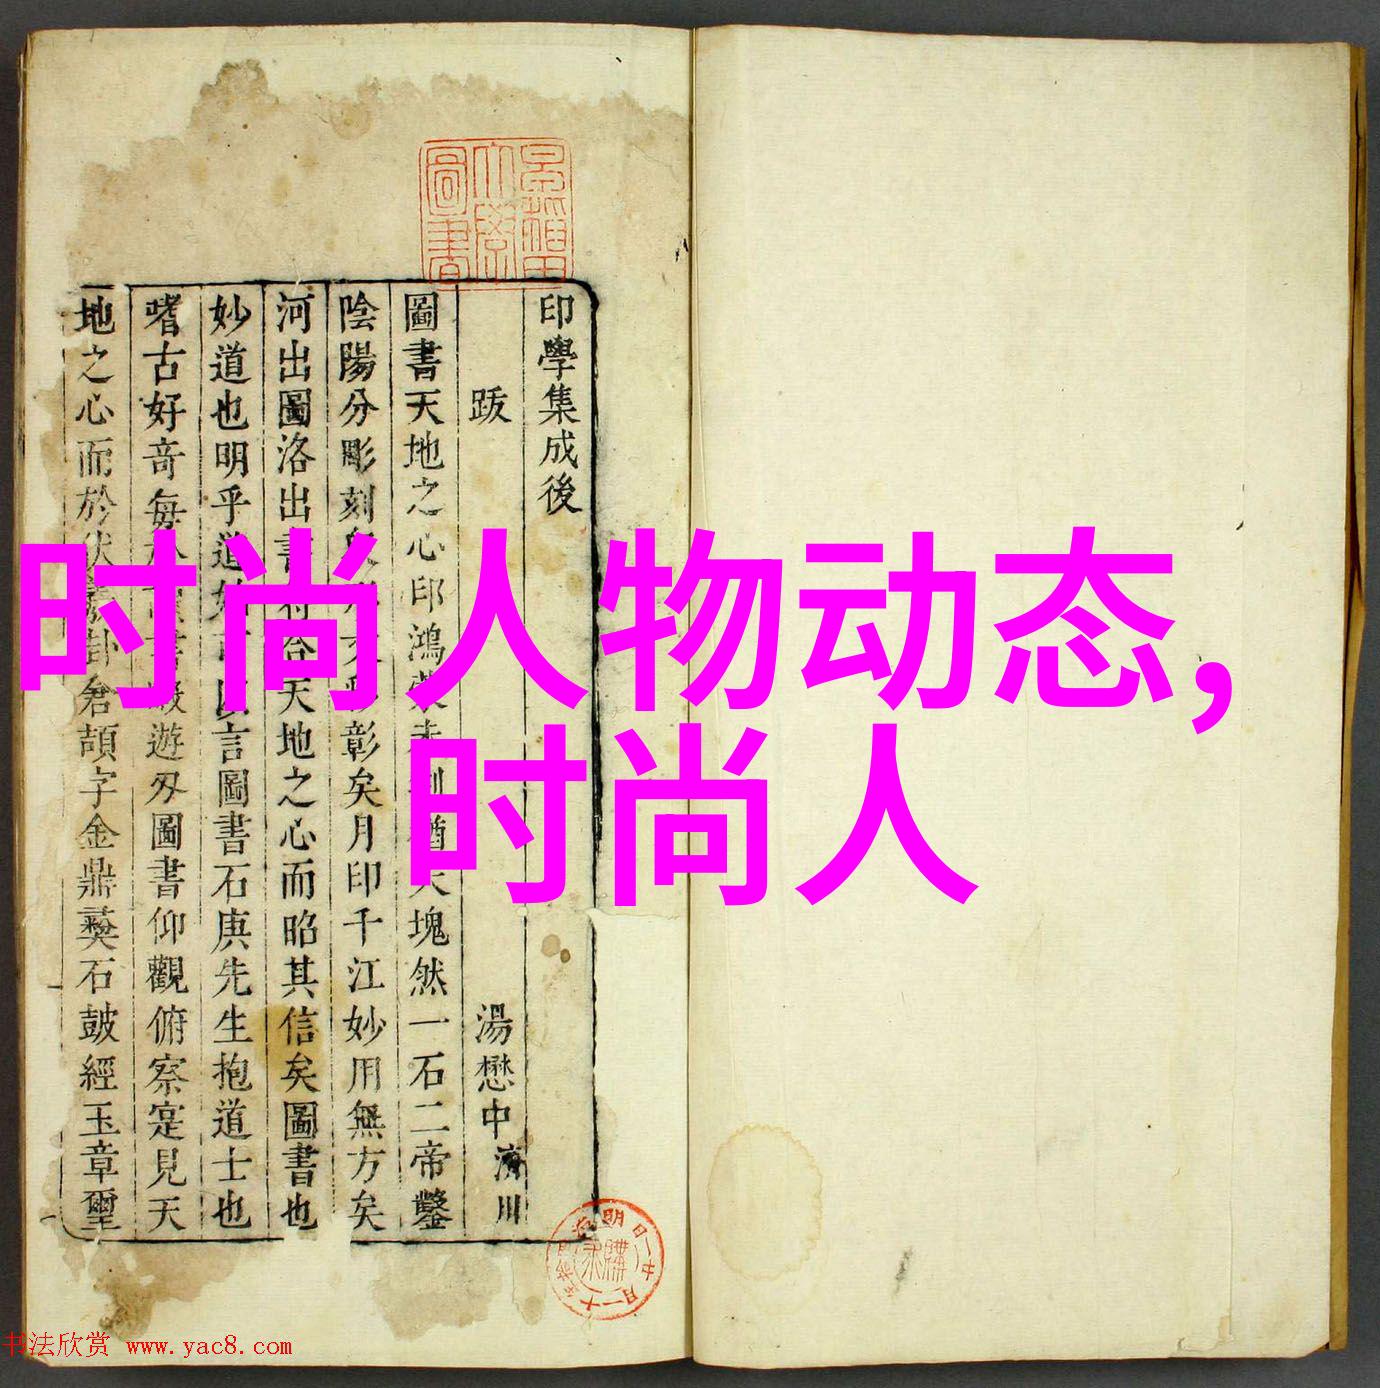 印學集成後
跋
湯懋中
濟川
圖書天地之心印鴻
塊然一石二帝鑿
陰陽分彫刻
彰矣月印千江妙用無方矣
河出圖洛出書
合天地之心而昭其信矣圖書也
妙道也明乎道
言圖書石庚先生抱道士也
嗜古好奇每
遊刃圖書仰觀俯察寔見天
地之心而於伏羲卦倉頡字金鼎彝石鼓經玉章璽
圖書
時尚人物动态,
时尚人
书法欣赏 www.yac8.com